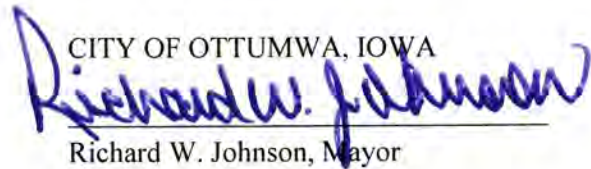 CITY OF OTTUMWA, IOWA
Richard W. Johnson
Richard W. Johnson, Mayor